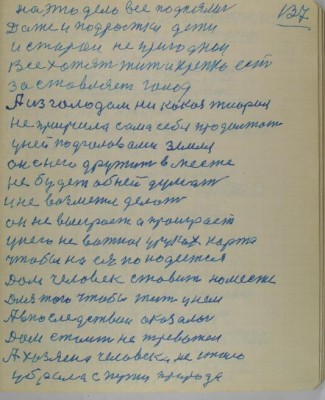 137
на это дело все поднялис
Даже и подростки дети
и старой не пригодной
Все хотят жит и крепко ест
заставляет голод
А из голодом ни какая тиория
не примирила сама себя продолжат
у ней под головами земля
он с него дружит в месте
не будет об ней думат
и не возмется делат
он не выиграет а проиграет
у него не важная в руках карта
чтобы на ся по надеется
Дом человек ставит на месте
для того чтобы жит у нем
А впоследствии оказалос
Дом стоит не тревожен
А хозяена человека не стало
убрала с пути природа